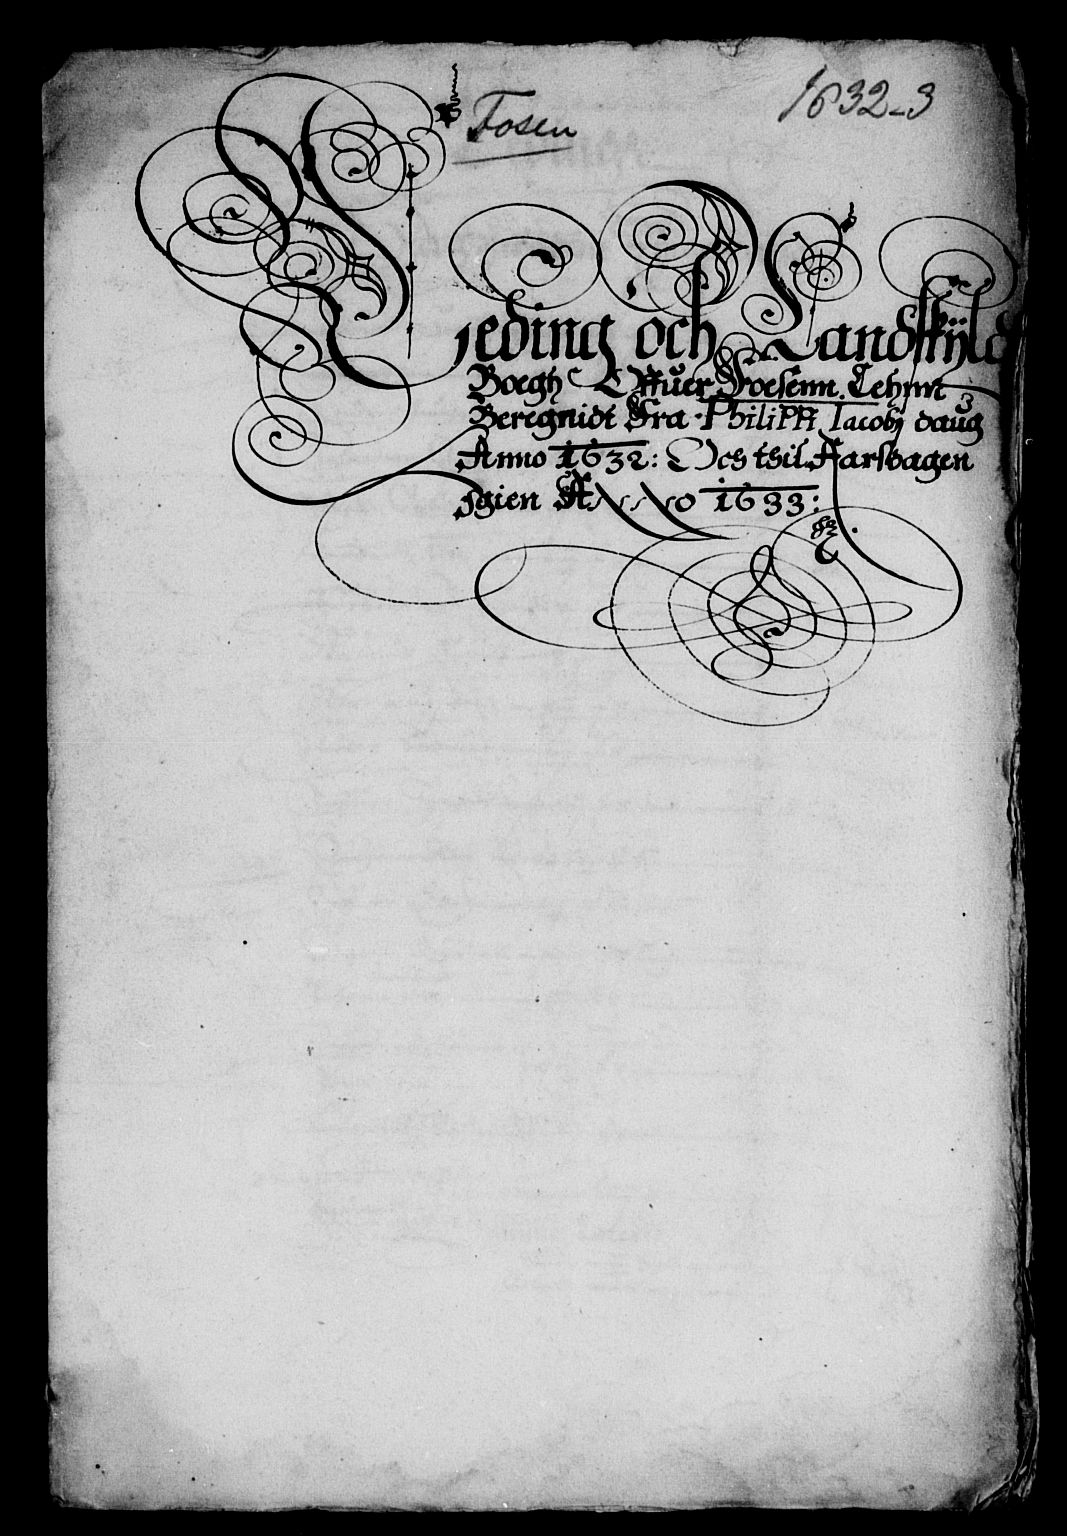 Fosen
1632-3
Leding och Landskÿld
Boegh Offuer Foesenn Lehnn
Beregnidt Fra Philippi Iacobj daug
Anno 1632: Och thil Aarsdagen
igien Anno 1633: